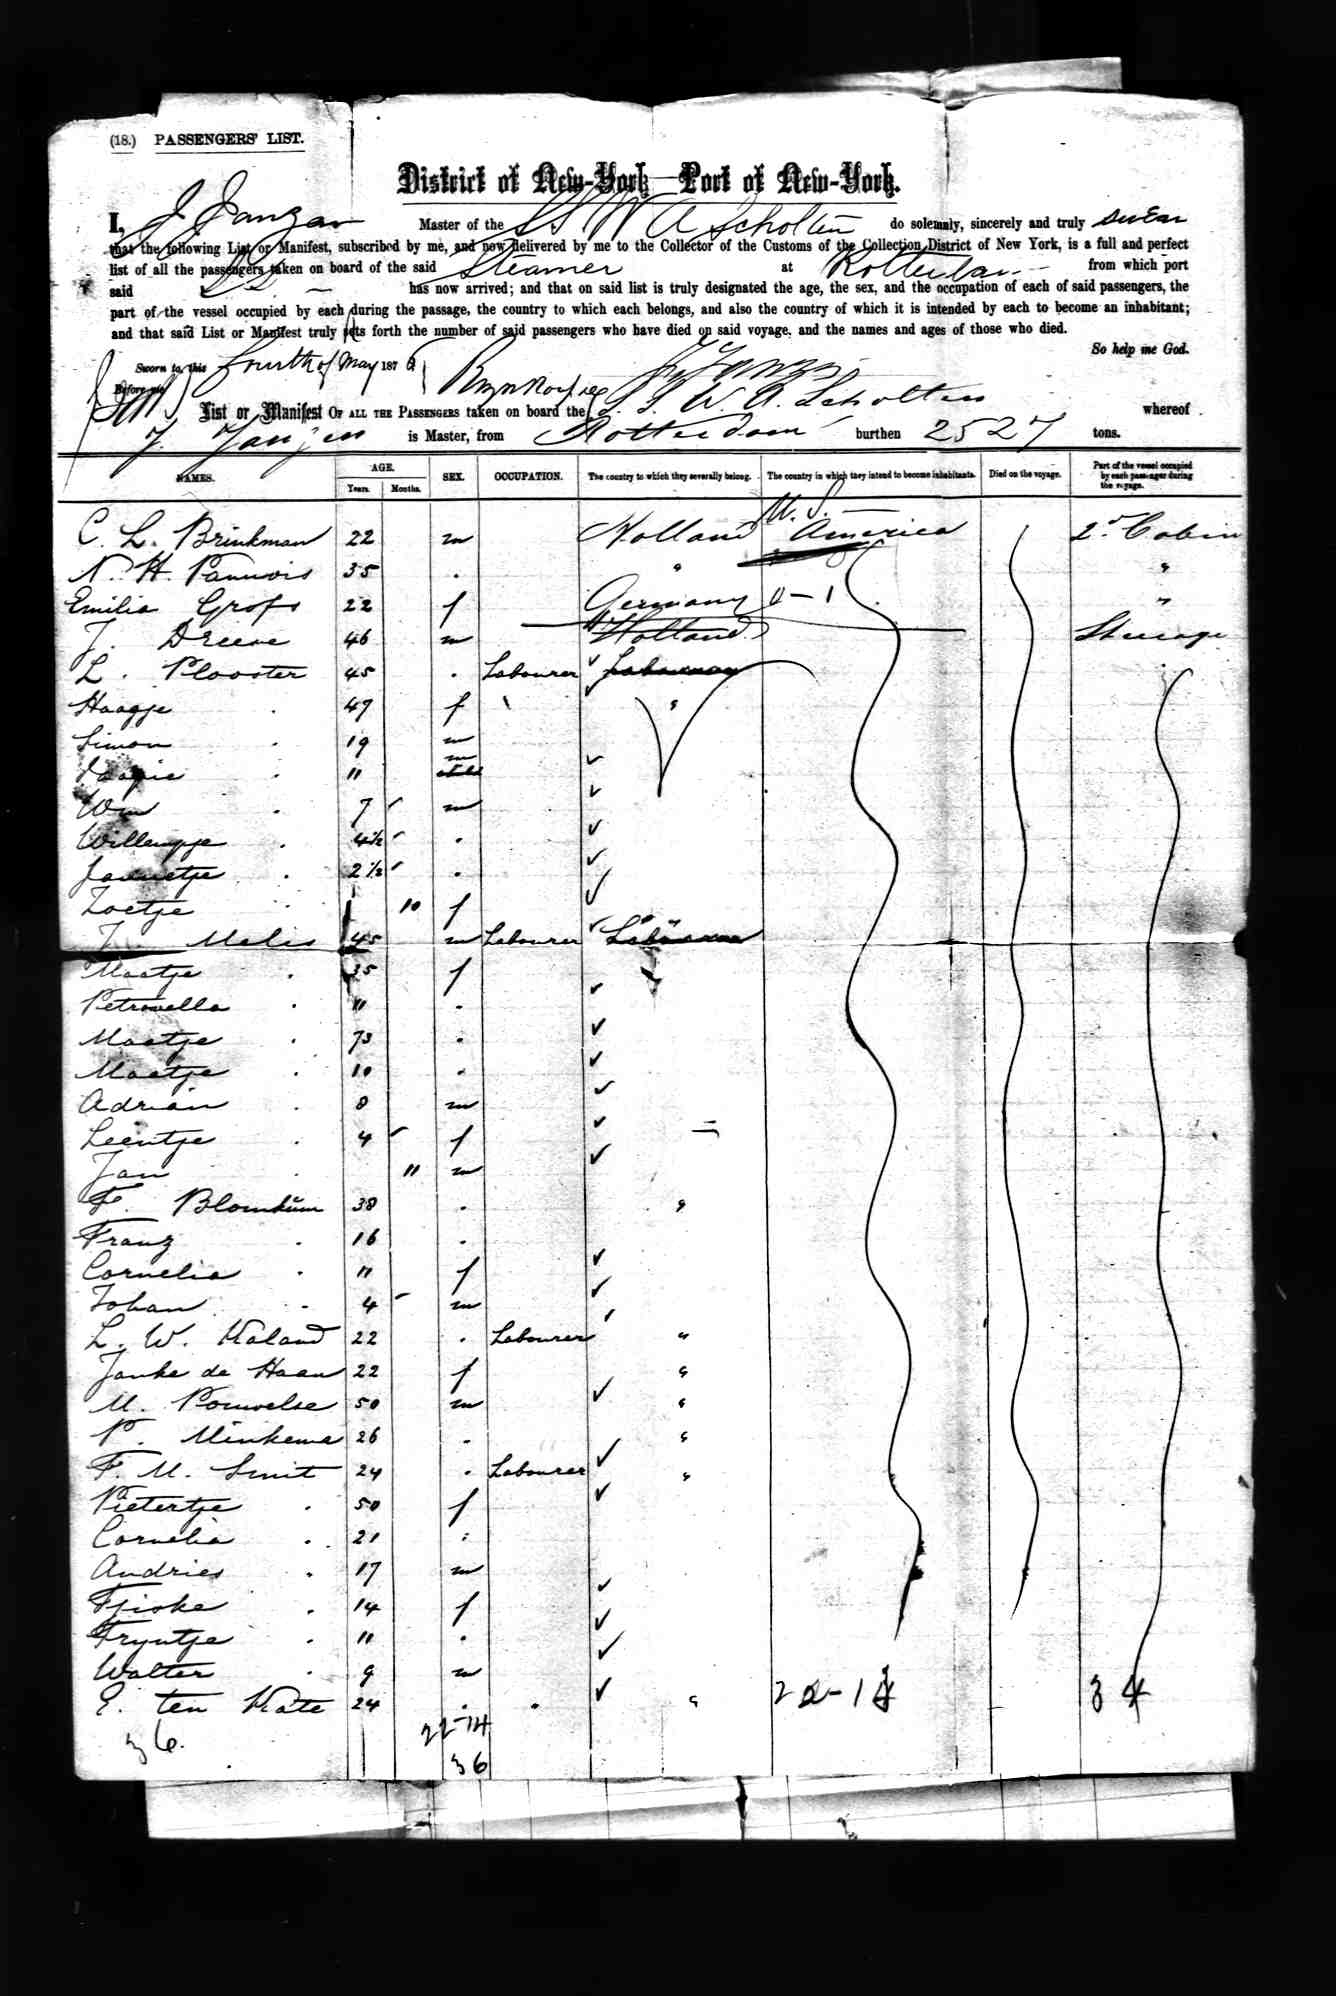 (18.) PASSENGERS' LIST.
District of New-York—Port of New-York.
I, J Janzen Master of the SS W A Scholten do solemnly, sincerely and truly swear
that the following List or Manifest, subscribed by me, and now delivered by me to the Collector of the Customs of the Collection District of New York, is a full and perfect
list of all the passengers taken on board of the said Steamer at Rotterdam from which port
said SS has now arrived; and that on said list is truly designated the age, the sex, and the occupation of each of said passengers, the
part of the vessel occupied by each during the passage, the country to which each belongs, and also the country of which it is intended by each to become an inhabitant;
and that said List or Manifest truly sets forth the number of said passengers who have died on said voyage, and the names and ages of those who died.
So help me God.
Sworn to this fourth of May 1876
Before me
List or Manifest OF ALL THE PASSENGERS taken on board the S. S. W. A. Scholten whereof
J. Janzen is Master, from Rotterdam burthen 2527 tons.
NAMES. AGE. Years. Months. SEX. OCCUPATION. The country to which they severally belong. The country in which they intend to become inhabitants. Died on the voyage. Part of the vessel occupied by each passenger during the voyage.
C. L. Brinkman 22 m Holland U. S. America 2d Cabin
N. H. Pannwis 35 . " "
Emilia Grofs 22 f Germany 0-1 "
J. Dreeve 46 m Holland Steerage
L. Plooster 45 . Labourer
Haagje . 47 f "
Simon . 19 m
. 11 m
Wm . 7 m
Willempje . 4½ .
Jannetje . 2½ .
Zoetje 10 f
J. Melis 45 m Labourer
Maatje . 35 f
Petronella . 11 .
Maatje . 73 .
Maatje . 10 .
Adrian . 8 m
Leentje . 4 f
Jan . 11 m
F. Blomkum 38 . "
Franz . 16 .
Cornelia . 11 f
Johan . 4 m
L. W. Kaland 22 . Labourer "
Janke de Haan 22 f "
M. Pouwelse 50 m "
P. Minkema 26 . "
F. M. Smit 24 . Labourer "
Pietertje . 50 f
Cornelia . 21 :
Andries . 17 m
Tjiske . 14 f
Tryntje . 11 .
Walter . 9 m
E. ten Kate 24 . . " 34
36. 22-14
36